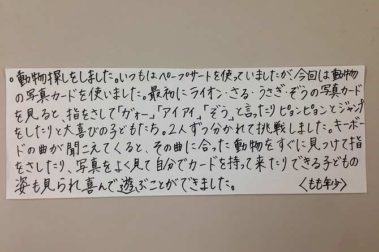 。動物探しをしました。いつもはペープサートを使っていましたが、今回は動物
の写真カードを使いました。最初にライオン・さる・うさぎ・ぞうの写真カード
を見ると、指をさして「ガォー」「アイアイ」「ぞう」と言ったりピョンピョンとジャンプ
をしたりと大喜びの子どもたち。2人ずつ分かれて挑戦しました。キーボー
ドの曲が聞こえてくると、その曲に合った動物をすぐに見つけて指
をさしたり、写真をよく見て自分でカードを持って来たりできる子どもの
姿も見られ喜んで遊ぶことができました。
〈もも年少〉